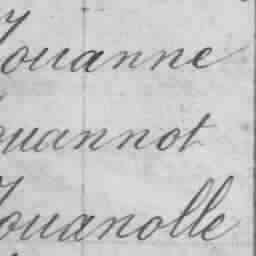 Jouanne
ouannot
Jouanolle